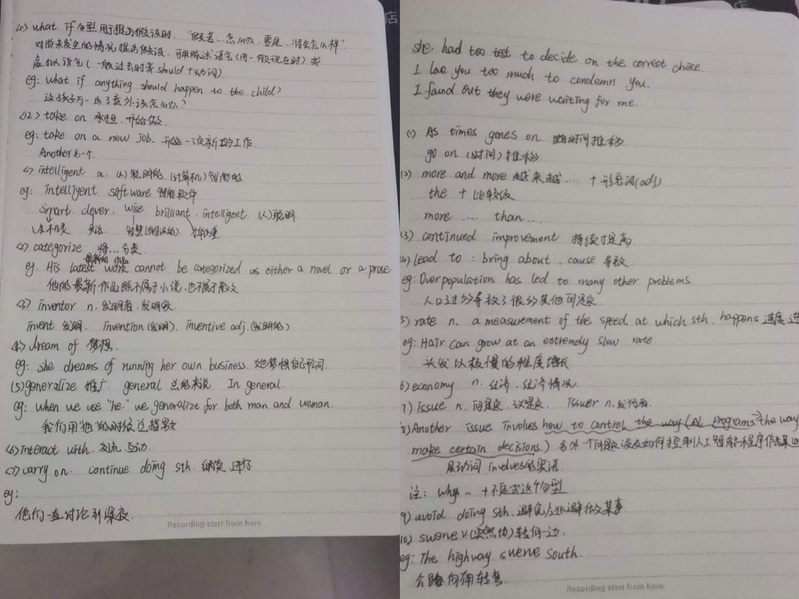 (1) what if 句型用于提出假设时. "假若…怎么办, 要是…将会怎么样"
对尚未发生的情况提出假设, 可用陈述语气(用一般现在时)或
虚拟语气(一般过去时或should+动词)
eg: what if anything should happen to the child?
这孩子万一出了意外该怎么办?
(2) take on 承担. 开始做
eg: take on a new job. 开始一次新的工作
Another 另一个
<1> intelligent a. (人)聪明的 (计算机)智能的
eg: intelligent software 智能软件
smart clever. wise brilliant. intelligent (人)聪明
<2> categorize 将…分类
eg. His latest work cannot be categorized as either a novel or a prose
他的最新作品既不属于小说, 也不属于散文
<3> inventor n. 发明者, 发明家
invent 发明. invention (发明). inventive adj. (发明的)
<4> dream of 梦想.
eg: she dreams of running her own business. 她梦想自己开公司
(5) generalize 推广 general 总的来说 In general.
eg: when we use "he." we generalize for both man and woman.
<6> interact with. 交流 互动.
<7> carry on. continue doing sth. 继续 进行
eg:
他们一直讨论到深夜.
Recording start from here
店
she had too test to decide on the correct choice.
I love you too much to condemn you.
I found out they were waiting for me
(1) As times gones on 随时间推移
go on (时间) 推移
(2) more and more 越来越… + 形容词(adj)
the + 比较级
more … than …
(3) continued improvement 持续提高
(4) lead to : bring about. cause 导致
eg: Overpopulation has led to many other problems
人口过多导致了很多其他问题
5) rate n. a measurement of the speed at which sth. happens 速度
eg: Hair can grow at an extremely slow rate
头发以极慢的速度增长
6) economy n. 经济. 经济情况
7) issue n. 问题, 议题. issuer n. 发行者
8) Another issue involves how to control the way (AI programs the way
make certain decisions) 另外一个问题涉及如何控制人工智能程序作出某
注: why - + 不定式这个句型
9) avoid doing sth. 避免/逃避做某事
(10) swerve v. (突然地) 转向一边
eg: The highway swerve south.
公路向南转弯
Recording start from here